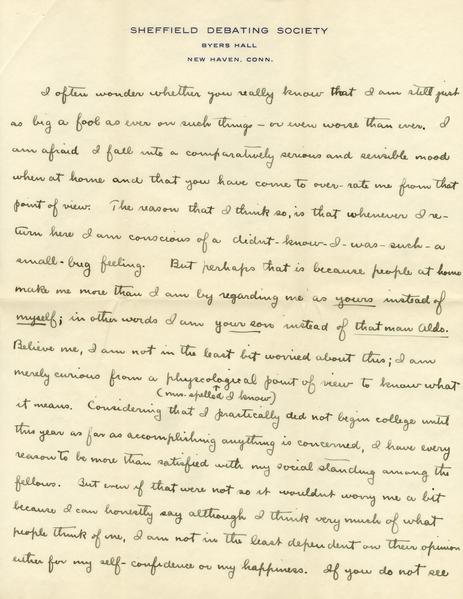 SHEFFIELD DEBATING SOCIETY
BYERS HALL
NEW HAVEN, CONN.
I often wonder whether you really know that I am still just
as big a fool as ever on such things – or even worse than ever. I
am afraid I fall into a comparatively serious and sensible mood
when at home and that you have come to over-rate me from that
point of view. The reason that I think so, is that whenever I re-
turn here I am conscious of a didnt-know-I-was-such-a
small-bug feeling. But perhaps that is because people at home
make me more than I am by regarding me as yours instead of
myself; in other words I am your son instead of that man Aldo.
Believe me, I am not in the least bit worried about this; I am
merely curious from a phycological point of view to know what
(mis-spelled I know)
it means. Considering that I practically did not begin college until
this year as far as accomplishing anything is concerned, I have every
reason to be more than satisfied with my social standing among the
fellows. But even if that were not so it wouldnt worry me a bit
because I can honestly say although I think very much of what
people think of me, I am not in the least dependent on their opinion
either for my self-confidence or my happiness. If you do not see